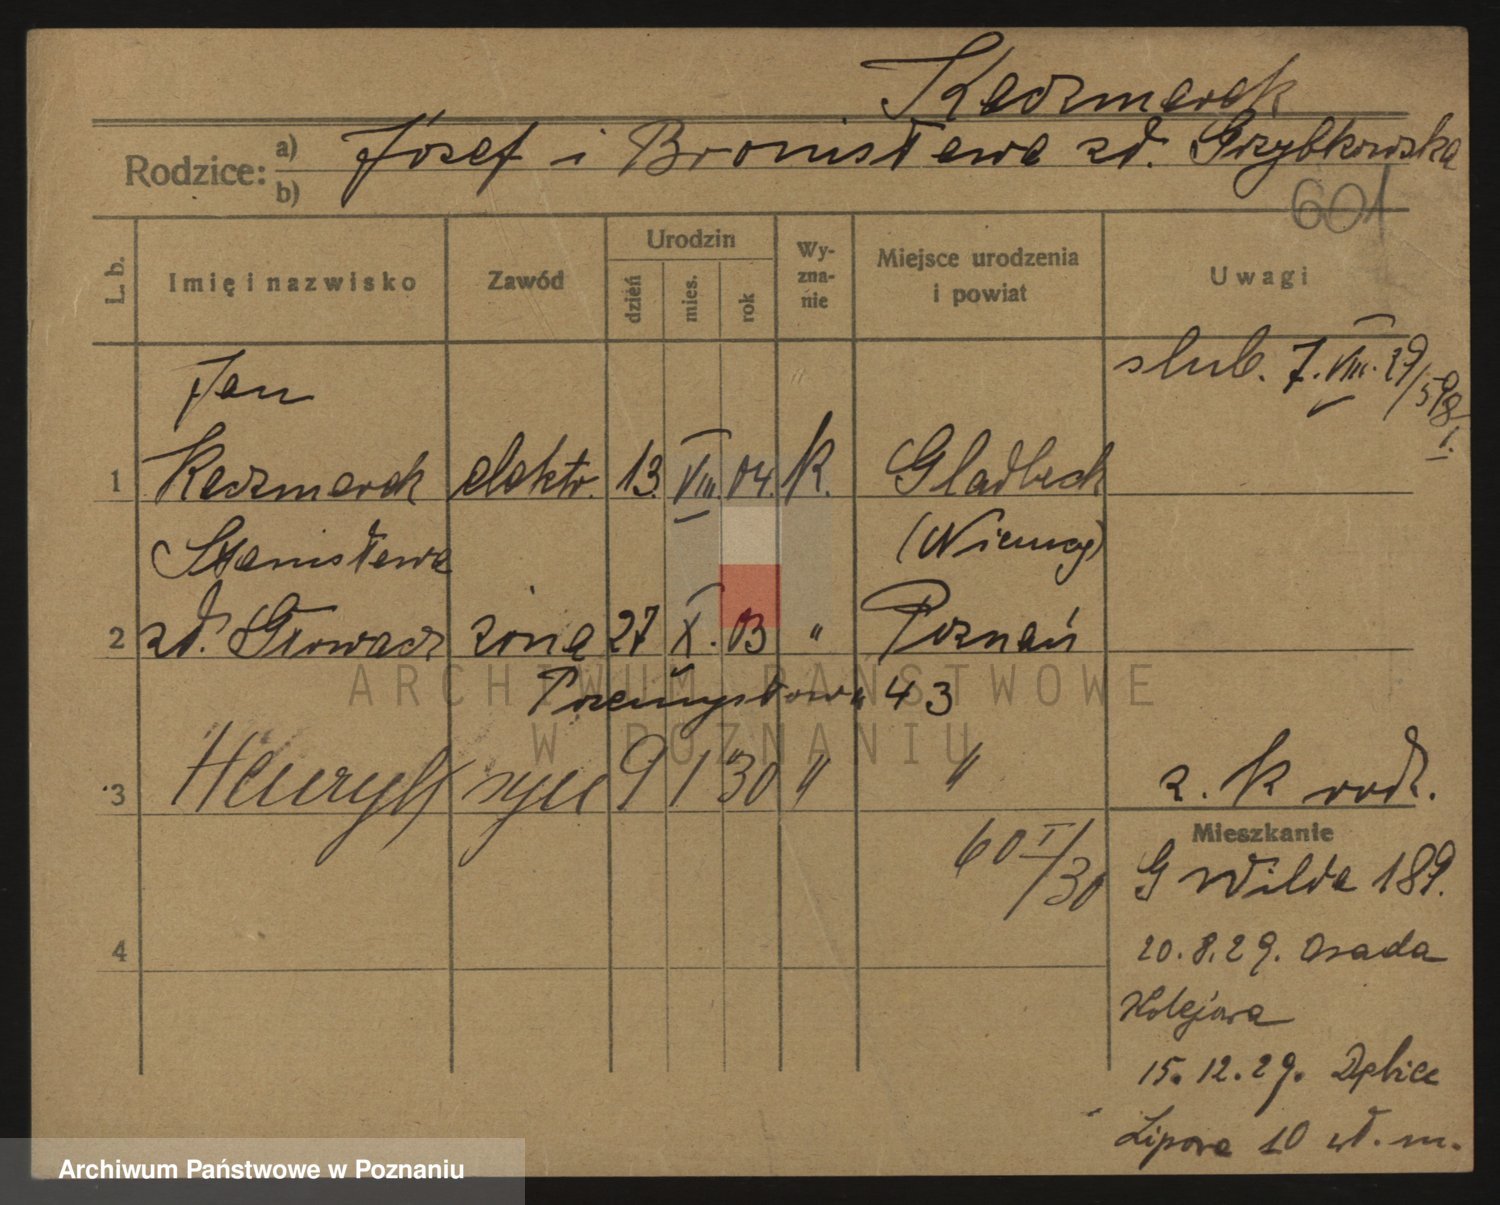 Kaczmarek
Rodzice: a) Józef i Bronisława zd. Grzybkowska
b)
601
L. b. Imię i nazwisko Zawód Urodzin dzień mies. rok Wy-zna-nie Miejsce urodzenia i powiat Uwagi
Jan ślub. 7. VIII. 29/598 I.
1 Kaczmarek elektr. 13. VIII. 04. K. Gladbeck
Stanisława (Niemcy)
2 zd. Głowacz żona 27 X. 03 " Poznań
Przemysłowa 43
3 Henryk syn 9 1 30 " " z. k rodz.
Mieszkanie
60 I/30 G Wilda 189.
20.8.29. Osada
4
Kolejowa
15.12.29. Dębiec
Lipowa 10 wł. m.
ARCHIWUM PAŃSTWOWE
W POZNANIU
Archiwum Państwowe w Poznaniu